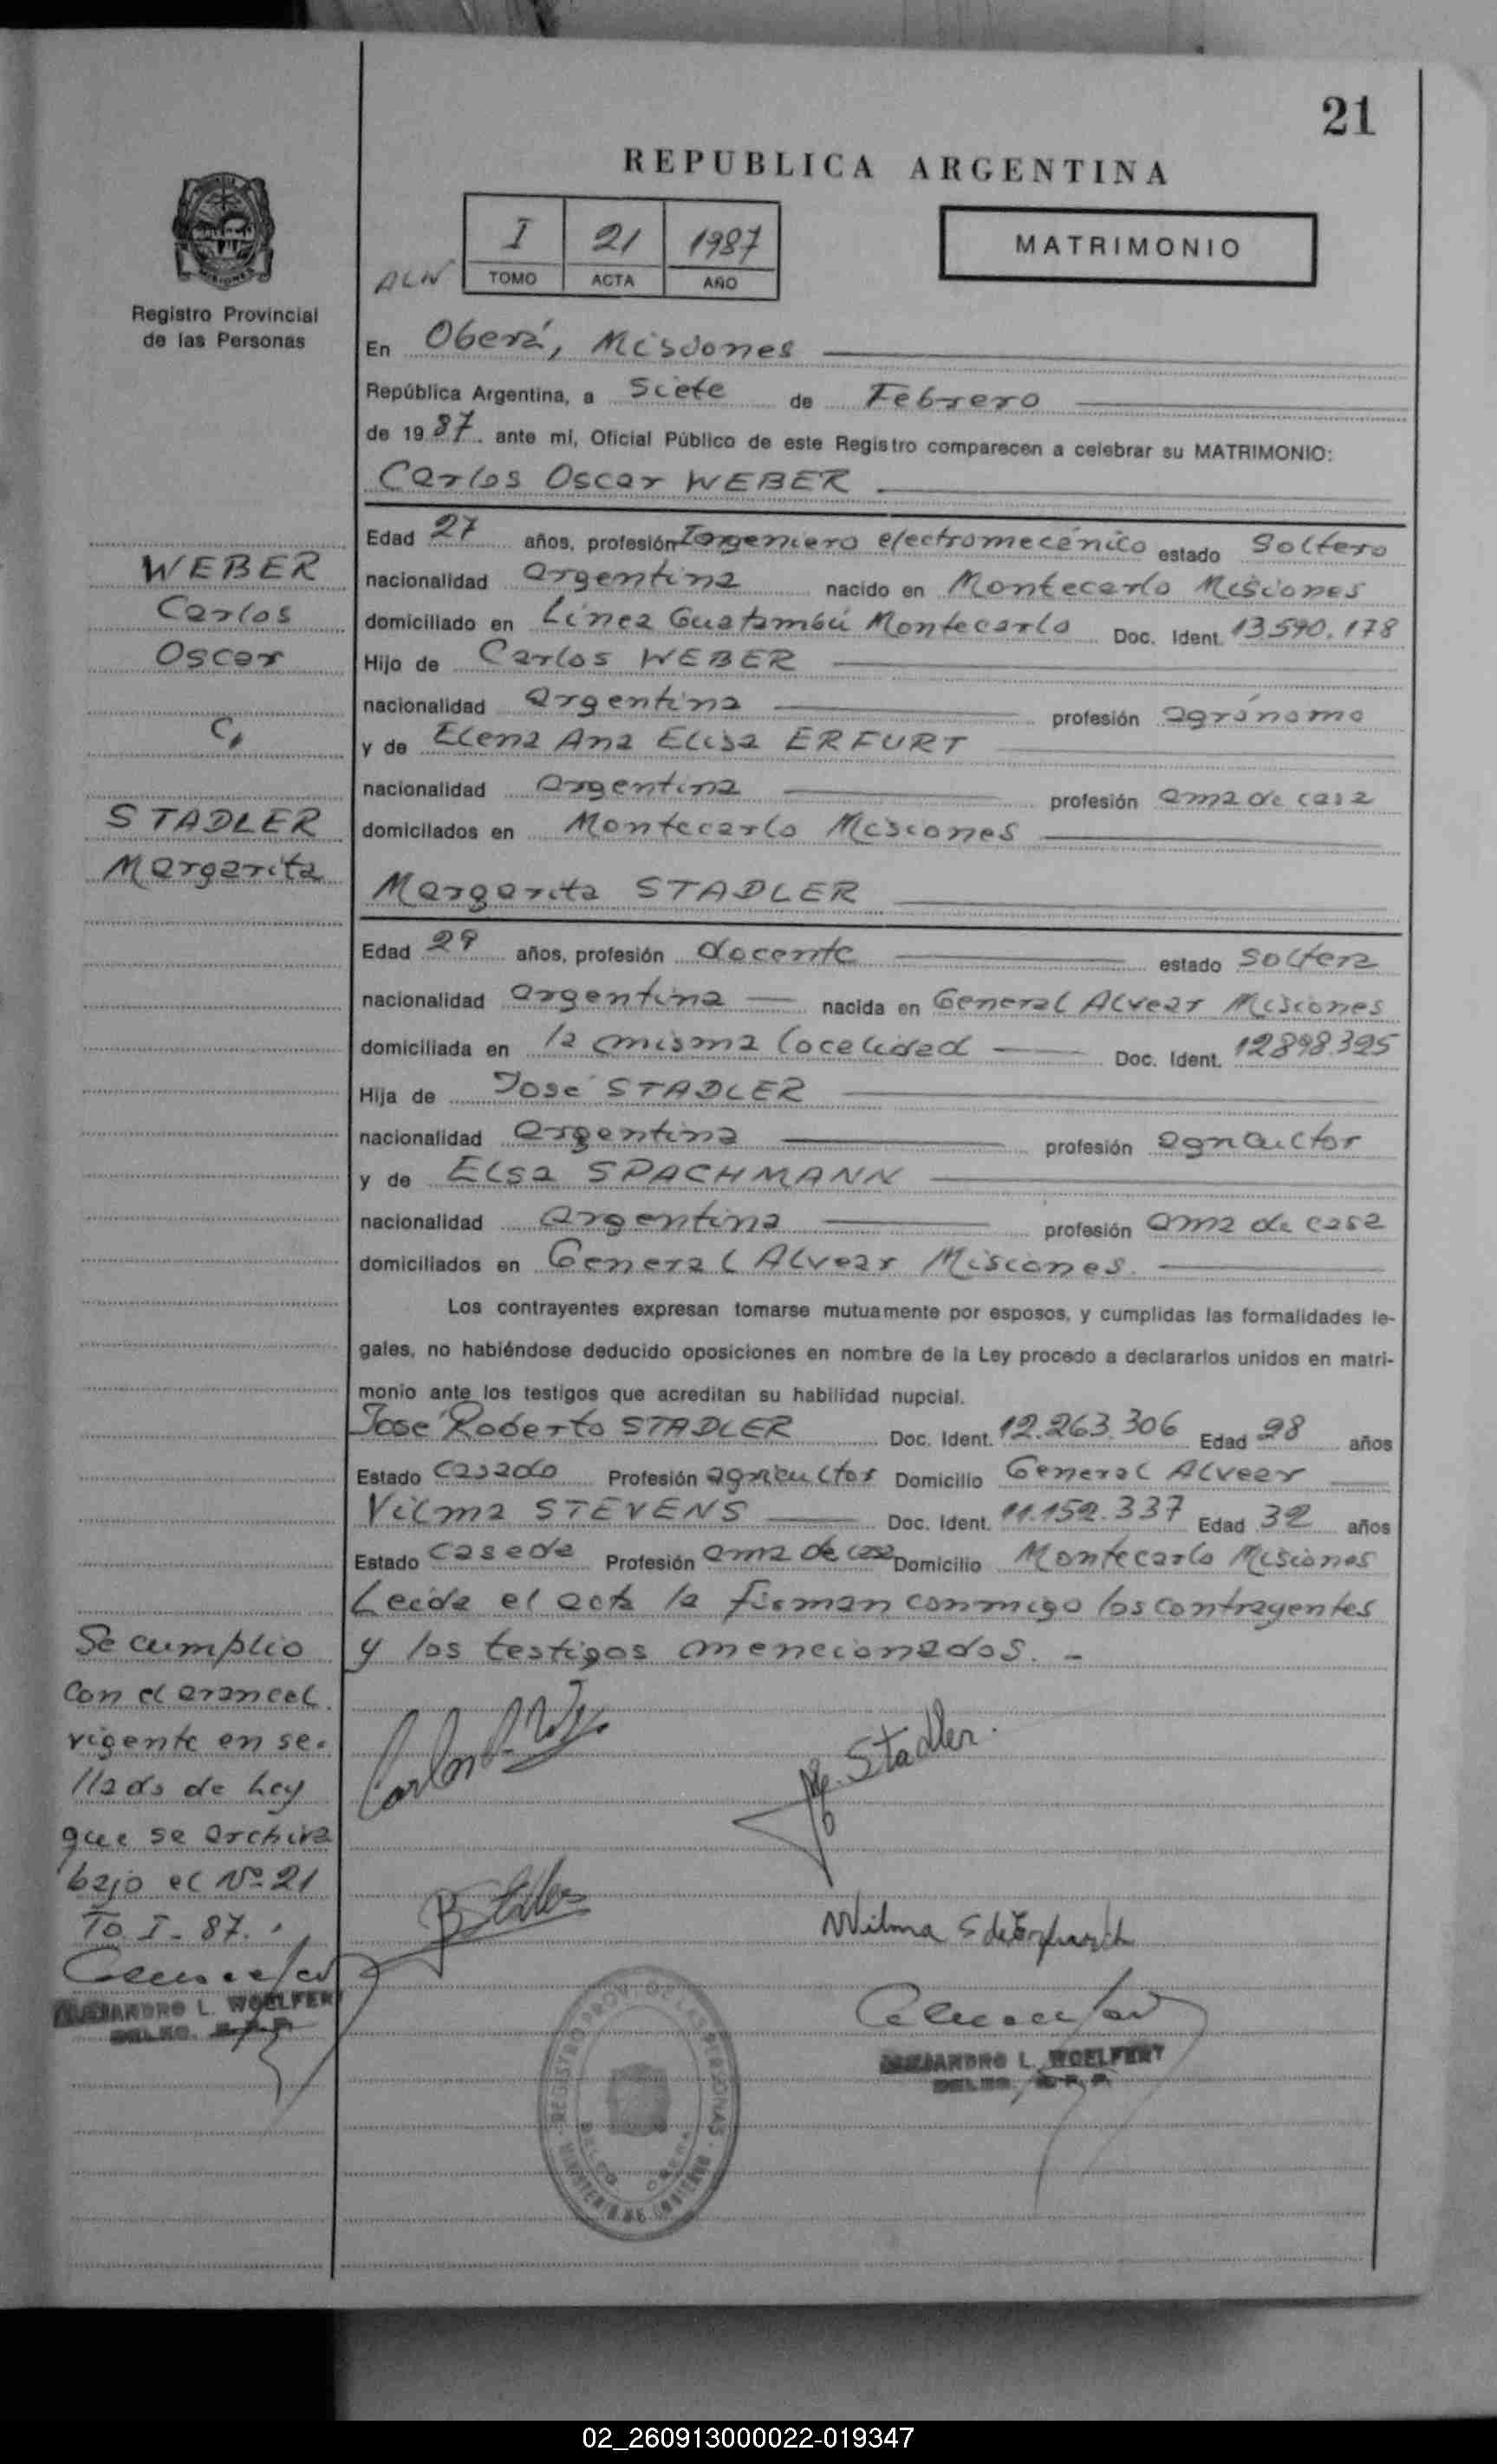 21
REPUBLICA ARGENTINA
I 21 1987
ALW TOMO ACTA AÑO
MATRIMONIO
Registro Provincial
de las Personas
En Oberá, Misiones
República Argentina, a Siete de Febrero
de 1987 ante mí, Oficial Público de este Registro comparecen a celebrar su MATRIMONIO:
Carlos Oscar WEBER
WEBER
Carlos
Oscar
C,
STADLER
Margarita
Edad 27 años, profesión Ingeniero electromecánico estado Soltero
nacionalidad argentina nacido en Montecarlo Misiones
domiciliado en Línea Guatambú Montecarlo Doc. Ident. 13.590.178
Hijo de Carlos WEBER
nacionalidad argentina profesión agrónomo
y de Elena Ana Elisa ERFURT
nacionalidad argentina profesión ama de casa
domicilados en Montecarlo Misiones
Margarita STADLER
Edad 29 años, profesión docente estado Soltera
nacionalidad argentina nacida en General Alvear Misiones
domiciliada en la misma localidad Doc. Ident. 12898.395
Hija de José STADLER
nacionalidad argentina profesión agricultor
y de Elsa SPACHMANN
nacionalidad argentina profesión ama de casa
domiciliados en General Alvear Misiones.
Los contrayentes expresan tomarse mutuamente por esposos, y cumplidas las formalidades le-
gales, no habiéndose deducido oposiciones en nombre de la Ley procedo a declararlos unidos en matri-
monio ante los testigos que acreditan su habilidad nupcial.
José Roberto STADLER Doc. Ident. 12.263.306 Edad 28 años
Estado Casado Profesión agricultor Domicilio General Alvear
Vilma STEVENS Doc. Ident. 11.152.337 Edad 32 años
Estado Casada Profesión ama de casa Domicilio Montecarlo Misiones
Leída el acta la firman conmigo los contrayentes
y los testigos mencionados. -
Se cumplio
con el arancel
vigente en se-
llado de Ley
que se archiva
bajo el Nº 21
To. I - 87.
M. Stadler.
Wilma S de
ALEJANDRO L. WOELFERT
ALEJANDRO L. WOELFERT
REGISTRO PROV. DE LAS PERSONAS
MINISTERIO DE GOBIERNO
02_260913000022-019347